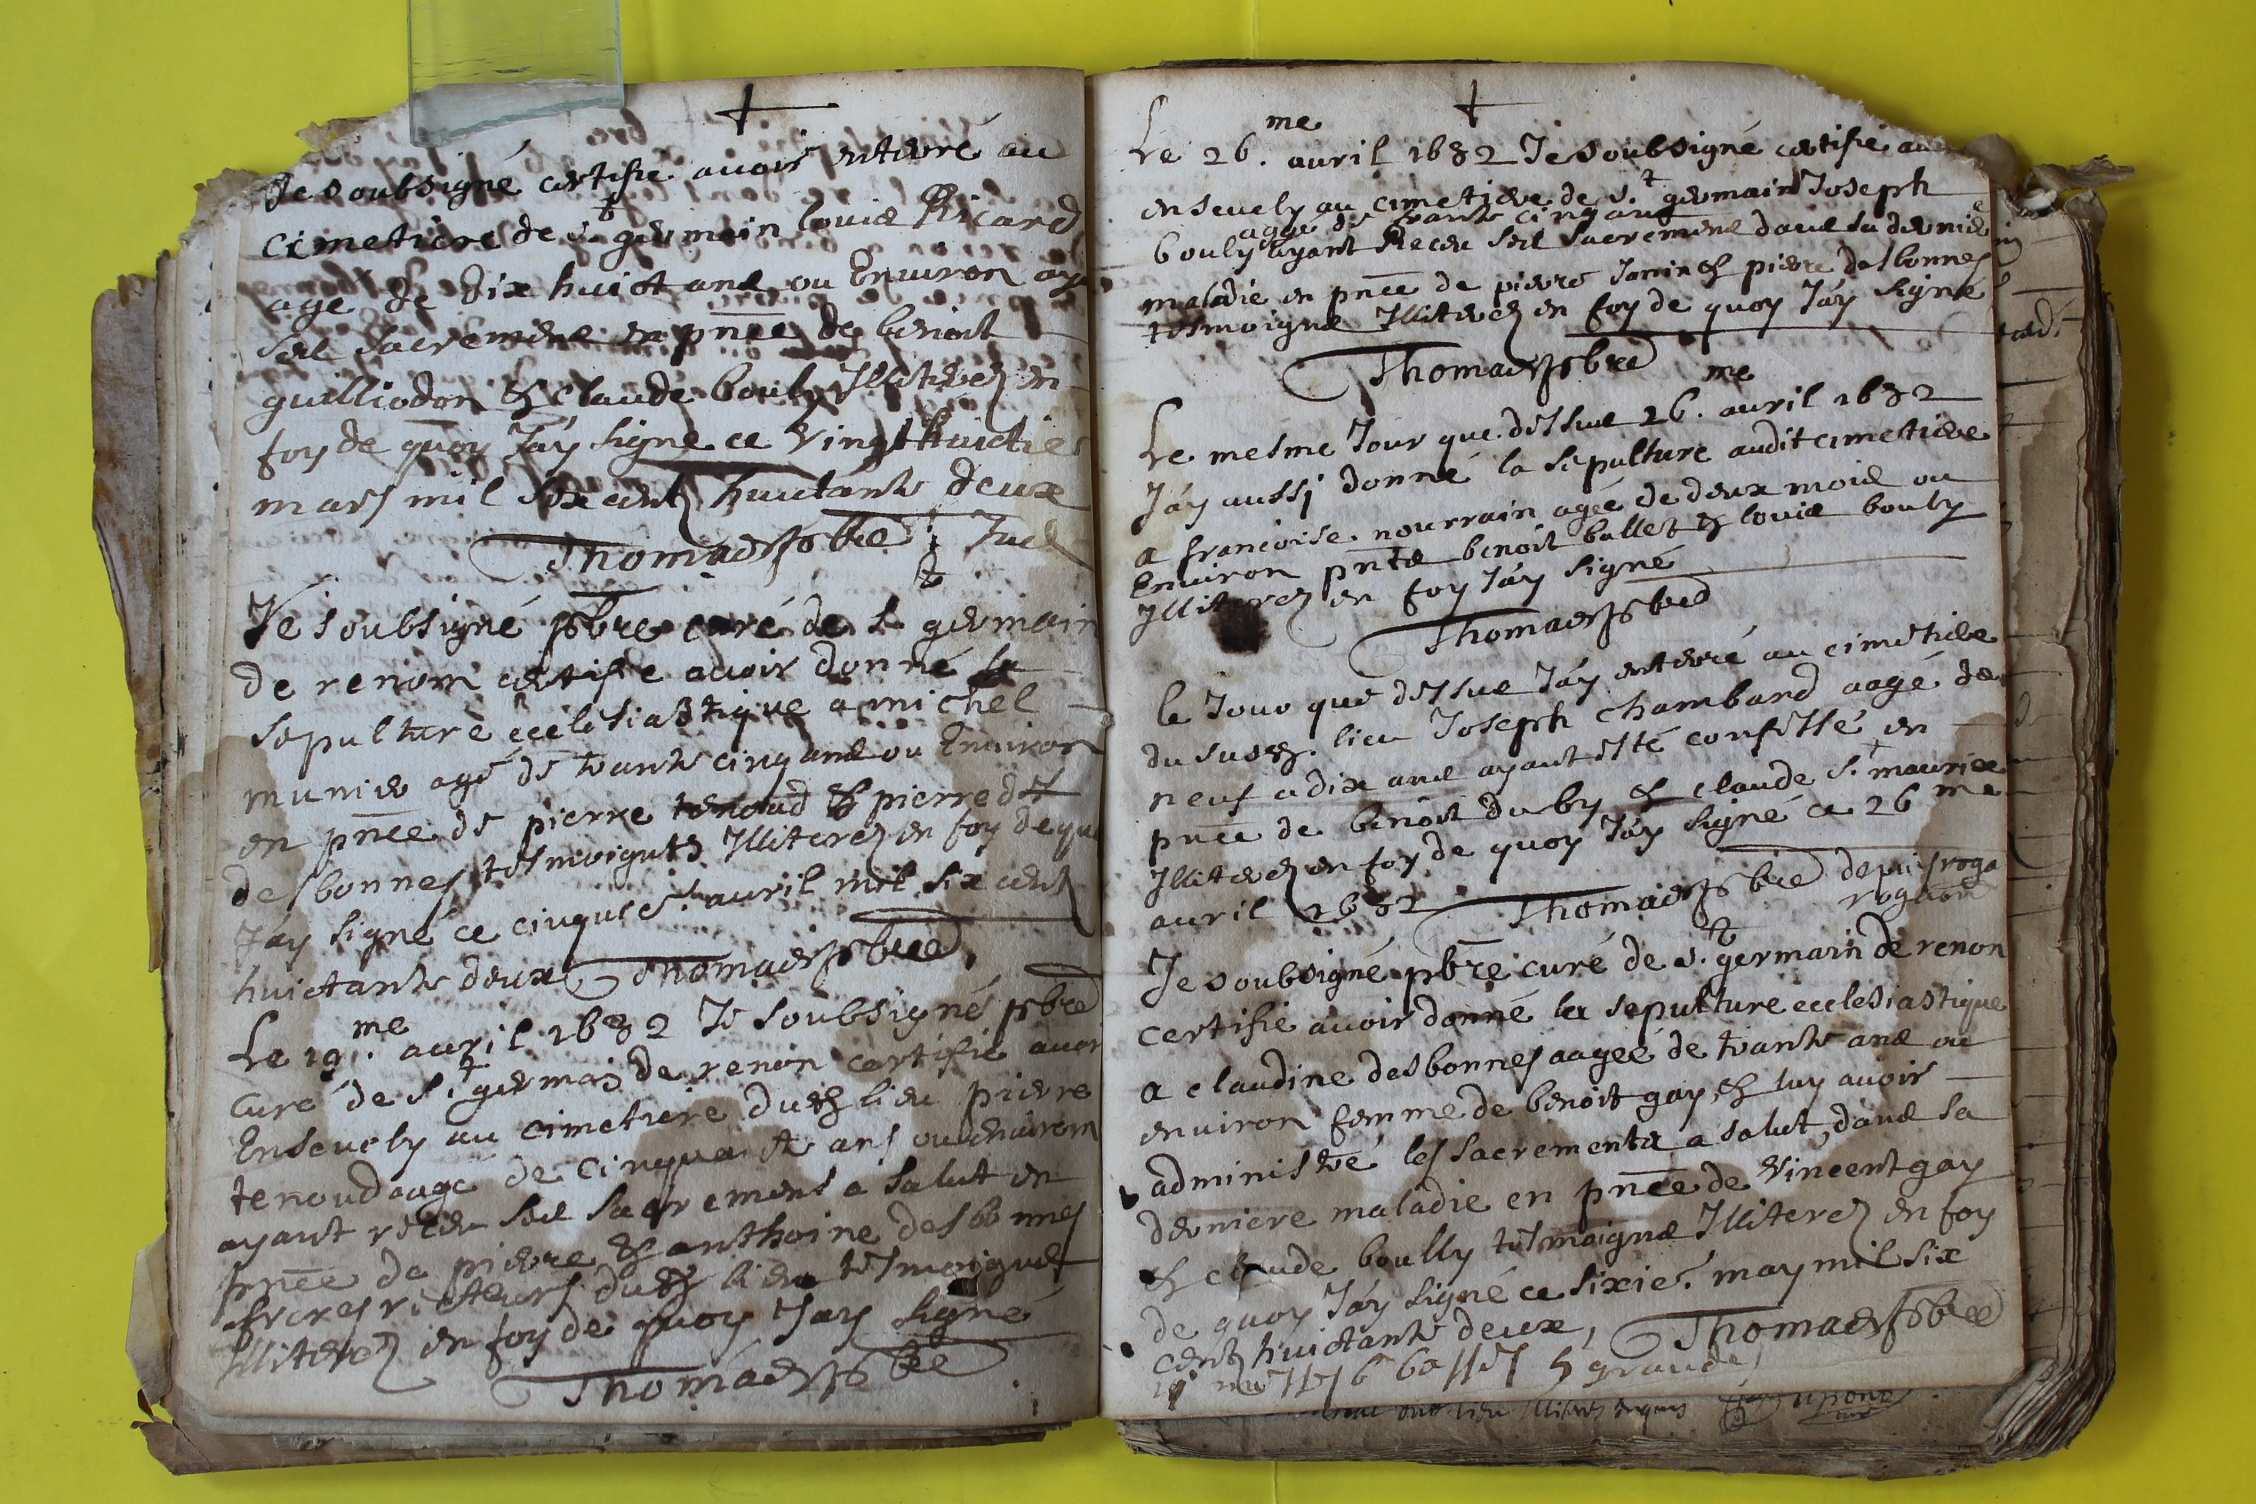 Je soubsigné certifie avoir enterré au
cimetiere de St germain louis Ricard
age de dix huict ans ou Environ
ses sacremens en pnce de benoit
guilliodon & claude bouly Illiterez en
foy de quoy Jáy signé ce vingthuictie
mars mil six centz huictante deux
Thomas pbre
Je soubsigné pbre curé de St germain
de renom certifie avoir donné la
sepulture ecclesiastique a michel
munier agé de trante cinq ans ou Environ
en pnce de pierre tenoud & pierre des
desbonnes tesmoignts Illiterez en foy de
Jáy signé ce cinquie. avril mil six centz
huictante deux Thomas pbre
Le 19.me avril 1682 Je soubsigné pbre
Curé de St germain de renon certifie avor
Ensevely au cimetiere dud lieu pierre
tenoud aagé de cinquante ans ou environ
ayant receu ses sacremens a salut en
pnce de pierre & anthoine desbonnes
freres dud lieu tesmoigns
Illiterez en foy de quoy Jay signé
Thomas pbre
Le 26.me avril 1682 Je soubsigné certifie
ensevely au cimetiere de St germain Joseph
agé de trante cinq ans
bouly ayant Receu ses sacremens dans sa derniere
maladie en pnce de pierre Janin & pierre desbonnes
tesmoigns Illiterez en foy de quoy Jáy signé
Thomas pbre
Le mesme Jour que dessus 26.me avril 1682
Jáy aussi donné la sepulture audit cimetiere
a francoise nourrain agée de deux mois ou
Environ pnts benoit ballet & louis bouly
Illiterez en foy Jáy signé
Thomas pbre
le Jour que dessus Jáy enterré au cimetiere
du susd. lieu Joseph chambard aagé de
neuf a dix ans ayant esté confessé en
pnce de benoit duby & claude St maurice
Illiterez en foy de quoy Jáy signé ce 26me
avril 1682 Thomas pbre
Je soubsigné pbre curé de St germain de renon
certifie avoir donné la sepulture ecclesiastique
a claudine desbonnes aagée de trante ans ou
environ femme de benoit gay & luy avoir
administré les sacrements a salut, dans sa
derniere maladie en pnce de vincent gay
& claude boully tesmoigns Illiterez en foy
de quoy Jáy signé ce sixie. may mil six
centz huictante deux, Thomas pbre